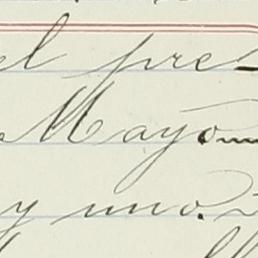 el pre
Mayo
y uno.